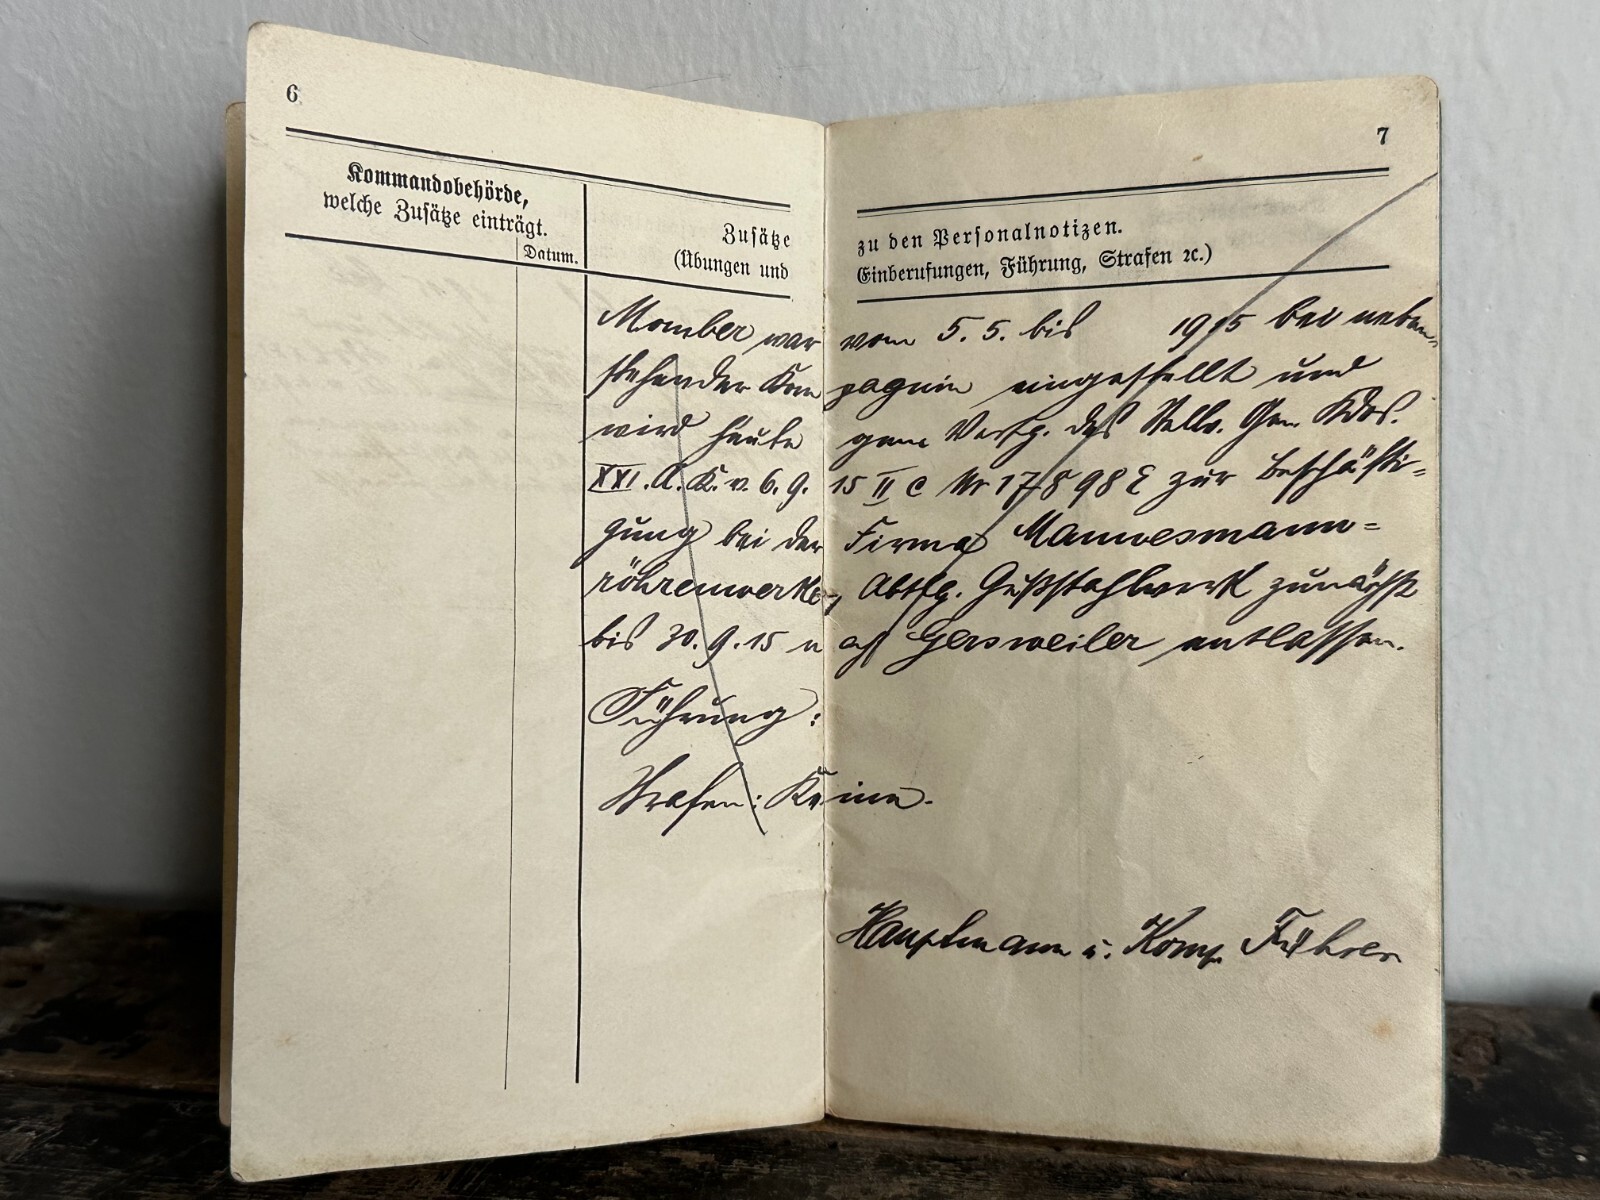 6
Kommandobehörde,
welche Zusätze einträgt.
Datum.
Zusätze
(Übungen und
7
zu den Personalnotizen.
Einberufungen, Führung, Strafen ꝛc.)
Momber war vom 5. 5. bis 1915 bei neben-
stehender Kompagnie eingestellt und
wird heute gem. Verfg. des Stellv. Gen. Kdos.
XXI. A. K. v. 6. 9. 15 II c Nr 17898 E zur Beschäfti=
gung bei der Firma Mannesmann=
röhrenwerke, Abtlg. Gußstahlwerk zunächst
bis 30. 9. 15 nach Gersweiler entlassen.
Führung:
Strafen: Keine.
Hauptmann u. Komp. Führer